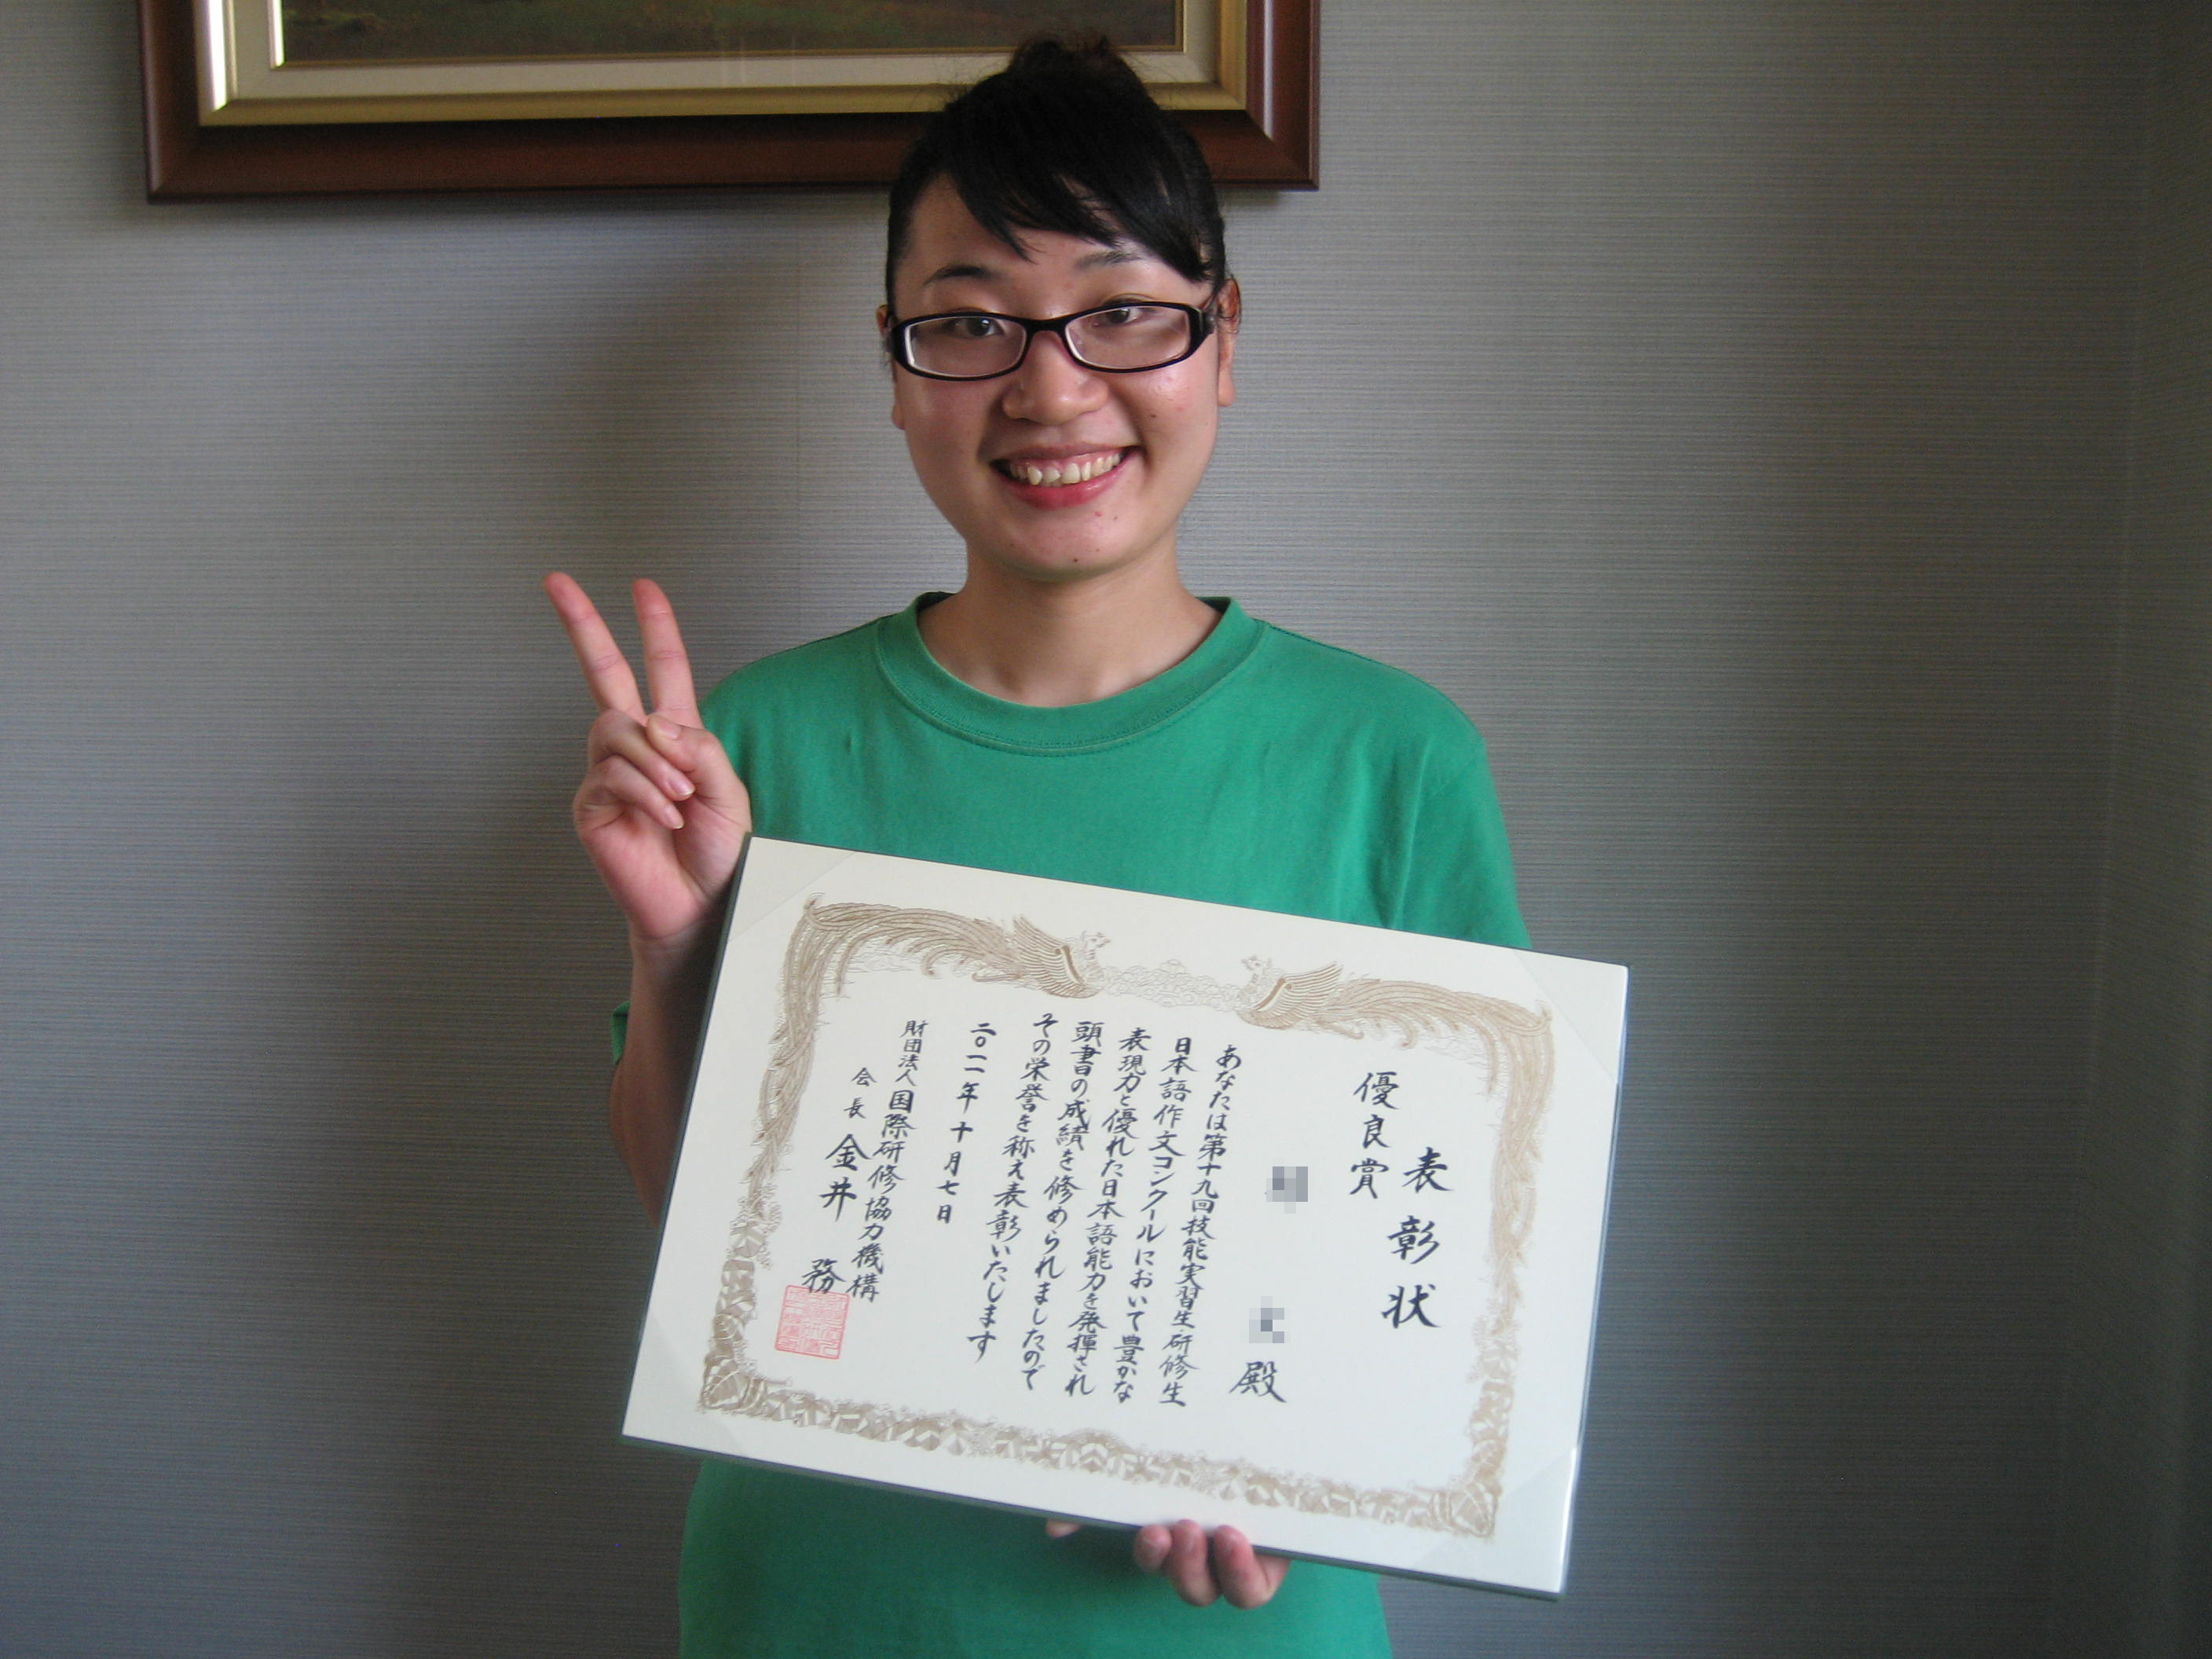 表彰状
優良賞
殿
あなたは第十九回技能実習生・研修生
日本語作文コンクールにおいて豊かな
表現力と優れた日本語能力を発揮され
頭書の成績を修められましたので
その栄誉を称え表彰いたします
二〇一一年十月七日
財団法人国際研修協力機構
会長 金井 務